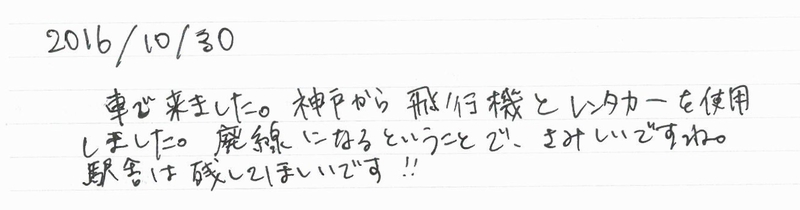 2016/10/30
車で来ました。神戸から飛行機とレンタカーを使用
しました。廃線になるということで、さみしいですね。
駅舎は残してほしいです!!